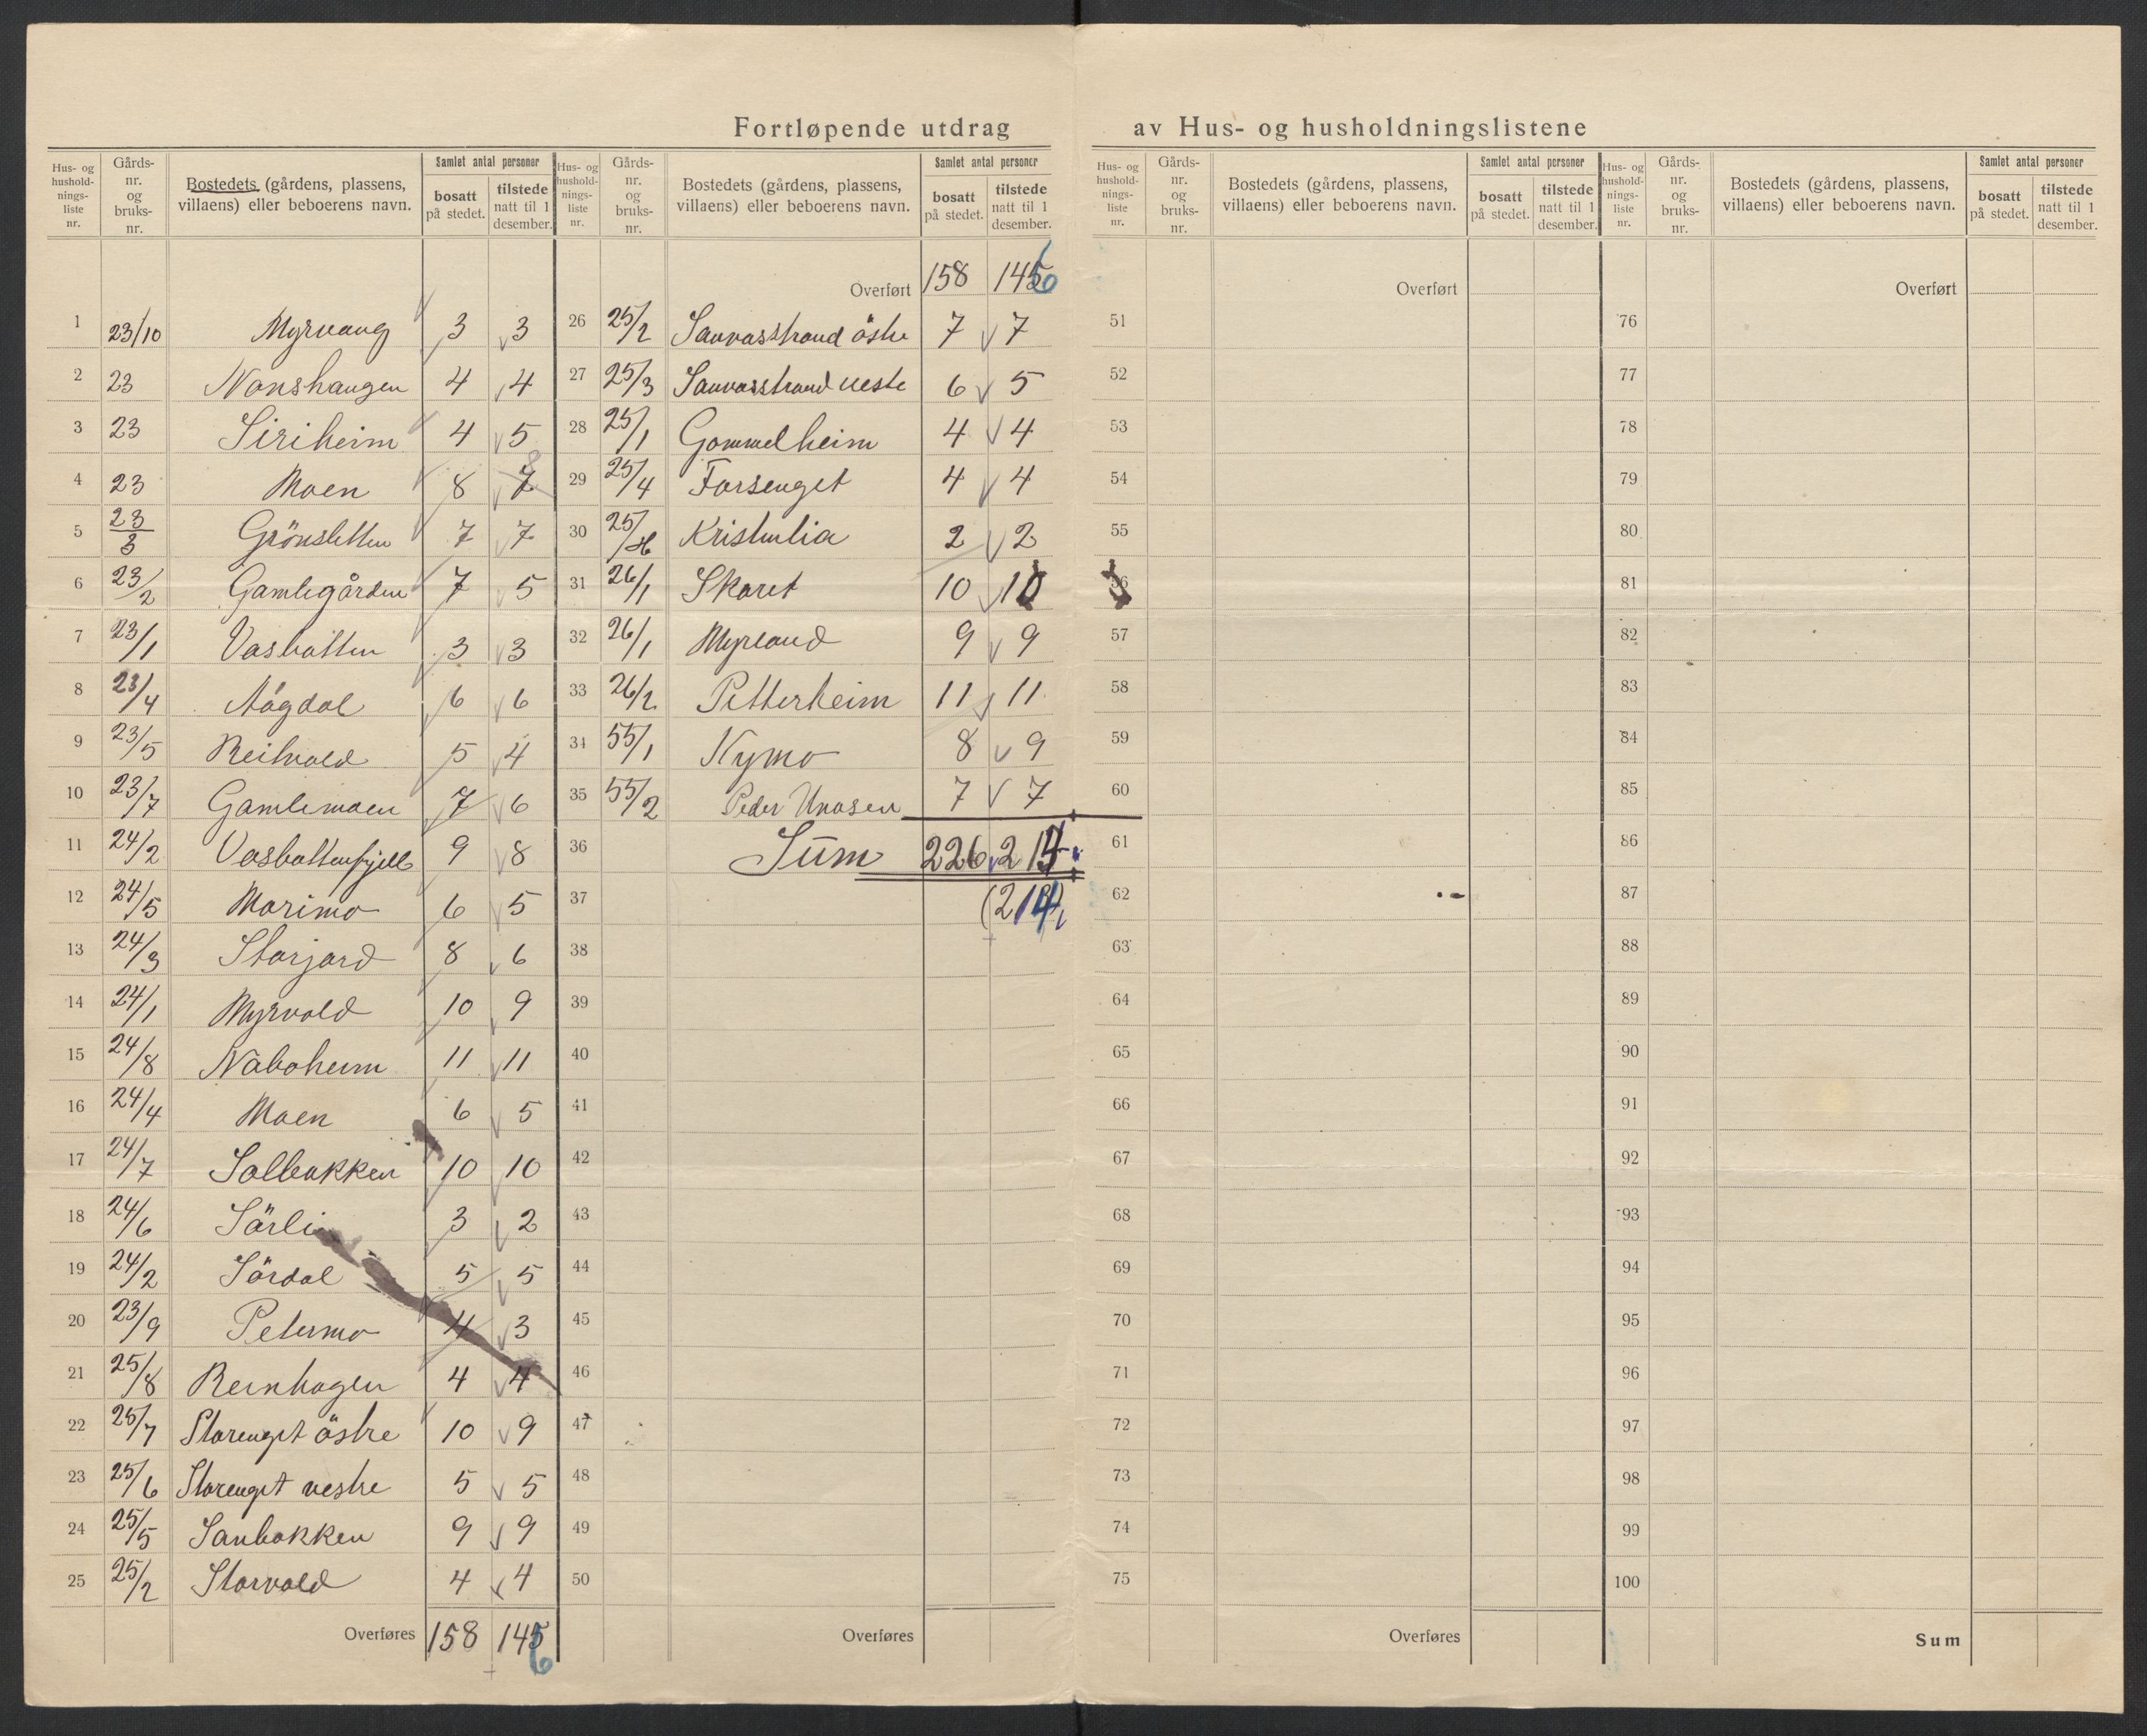 Fortløpende utdrag av Hus- og husholdningslistene
Hus- og hushold-nings-liste nr. | Gårds-nr. og bruks-nr. | Bostedets (gårdens, plassens, villaens) eller beboerens navn. | Samlet antal personer | bosatt på stedet. | tilstede natt til 1 desember.
1 23/10 Myrvang 3 3
2 23 Nonshaugen 4 4
3 23 Siriheim 4 5
4 23 Moen 8 7 8
5 23/3 Grönsletten 7 7
6 23/2 Gamlegården 7 5
7 23/1 Vasbotten 3 3
8 23/4 Aagdal 6 6
9 23/5 Reitvold 5 4
10 23/7 Gamlemoen 7 6
11 24/2 Vasbottenfjell 9 8
12 24/5 Marimo 6 5
13 24/3 Storjord 8 6
14 24/1 Myrvold 10 9
15 24/8 Naboheim 11 11
16 24/4 Moen 6 5
17 24/7 Solbakken 10 10
18 24/6 Sörli 3 2
19 24/2 Sördal 5 5
20 23/9 Petermo 4 3
21 25/8 Reinhagen 4 4
22 25/7 Storenget östre 10 9
23 25/6 Storenget vestre 5 5
24 25/5 Sanbakken 9 9
25 25/2 Storvold 4 4
Overføres 158 145 6
Hus- og hushold-nings-liste nr. | Gårds-nr. og bruks-nr. | Bostedets (gårdens, plassens, villaens) eller beboerens navn. | Samlet antal personer | bosatt på stedet. | tilstede natt til 1 desember.
Overført 158 145 6
26 25/2 Sauvasstrand östre 7 7
27 25/3 Sauvasstrand veste 6 5
28 25/1 Gammelheim 4 4
29 25/4 Forsenget 4 4
30 25/ Kristenlia 2 2
31 26/1 Skaret 10 10
32 26/1 Myrland 9 9
33 26/2 Petterheim 11 11
34 55/1 Nymo 8 9
35 55/2 Peder Unosen 7 7
36 Sum 226 214
37 (214)
38
39
40
41
42
43
44
45
46
47
48
49
50
Overføres
Hus- og hushold-nings-liste nr. | Gårds-nr. og bruks-nr. | Bostedets (gårdens, plassens, villaens) eller beboerens navn. | Samlet antal personer | bosatt på stedet. | tilstede natt til 1 desember.
Overført
51
52
53
54
55
56
57
58
59
60
61
62
63
64
65
66
67
68
69
70
71
72
73
74
75
Overføres
Hus- og hushold-nings-liste nr. | Gårds-nr. og bruks-nr. | Bostedets (gårdens, plassens, villaens) eller beboerens navn. | Samlet antal personer | bosatt på stedet. | tilstede natt til 1 desember.
Overført
76
77
78
79
80
81
82
83
84
85
86
87
88
89
90
91
92
93
94
95
96
97
98
99
100
Sum